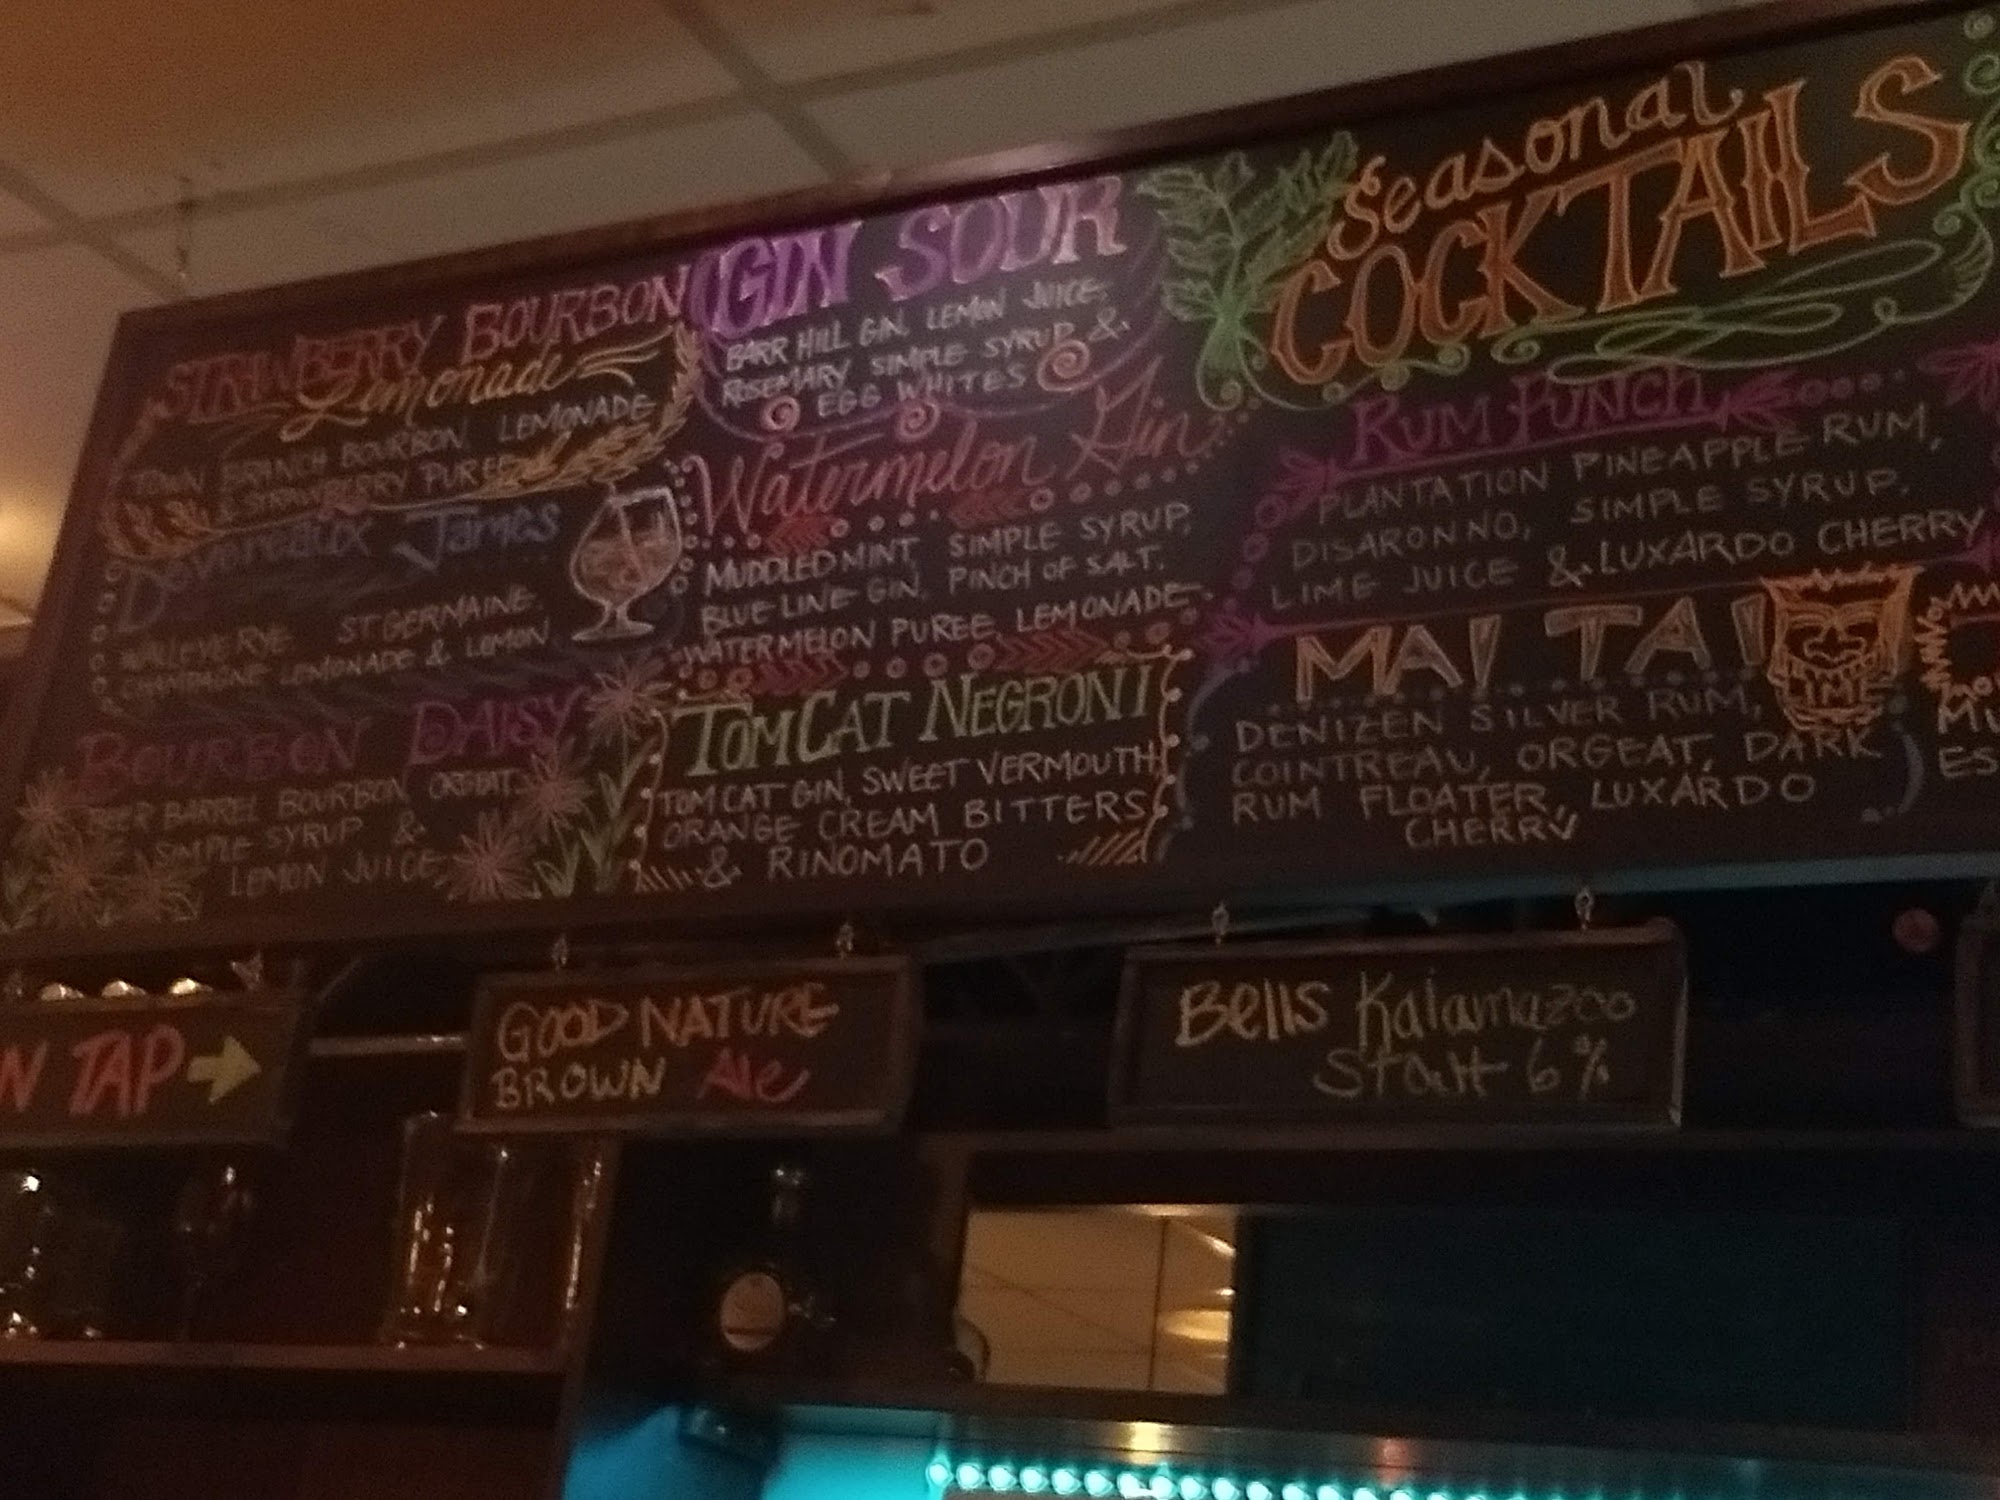 STRAWBERRY BOURBON
Lemonade
TOWN BRANCH BOURBON, LEMONADE
& STRAWBERRY PUREE
Devereaux James
WALLEYE RYE ST. GERMAINE,
CHAMPAGNE LEMONADE & LEMON
BOURBON DAISY
BEER BARREL BOURBON, ORGEAT,
SIMPLE SYRUP &
LEMON JUICE
GIN SOUR
BARR HILL GIN, LEMON JUICE,
ROSEMARY SIMPLE SYRUP &
EGG WHITES
Watermelon Gin
MUDDLED MINT, SIMPLE SYRUP,
BLUE LINE GIN, PINCH OF SALT,
WATERMELON PUREE, LEMONADE
TOMCAT NEGRONI
TOM CAT GIN, SWEET VERMOUTH,
ORANGE CREAM BITTERS
& RINOMATO
Seasonal
COCKTAILS
RUM PUNCH
PLANTATION PINEAPPLE RUM,
DISARONNO, SIMPLE SYRUP,
LIME JUICE & LUXARDO CHERRY
MAI TAI
DENIZEN SILVER RUM, LIME
COINTREAU, ORGEAT, DARK
RUM FLOATER, LUXARDO
CHERRY
MU
ES
N TAP
GOOD NATURE
BROWN Ale
Bells Kalamazoo
Stout 6%